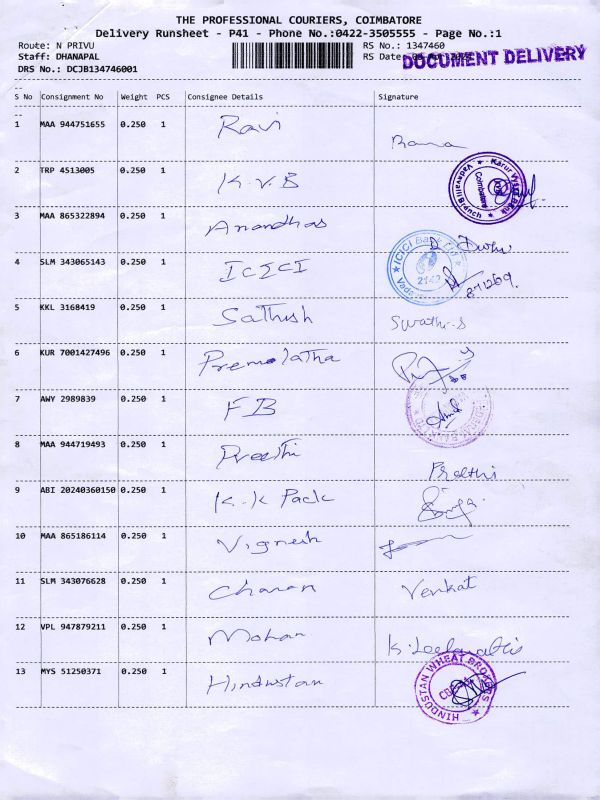 THE PROFESSIONAL COURIERS, COIMBATORE
Delivery Runsheet - P41 - Phone No.:0422-3505555 - Page No.:1
Route: N PRIVU RS No.: 1347460
Staff: DHANAPAL RS Date: DOCUMENT DELIVERY
DRS No.: DCJB134746001
S No Consignment No Weight PCS Consignee Details Signature
1 MAA 944751655 0.250 1 Ravi Rama
2 TRP 4513005 0.250 1 K.V.B
Karur Vysya Bank Coimbatore Vadavalli Branch
3 MAA 865322894 0.250 1 Anandhas
4 SLM 343065143 0.250 1 ICICI 871269
ICICI Bank Ltd 2142
5 KKL 3168419 0.250 1 Sathish Swathi-S
6 KUR 7001427496 0.250 1 Premalatha
7 AWY 2989839 0.250 1 FB
8 MAA 944719493 0.250 1 Preethi Preethi
9 ABI 20240360150 0.250 1 K.K Pack
10 MAA 865186114 0.250 1 Vignesh
11 SLM 343076628 0.250 1 Charan Venkat
12 VPL 947879211 0.250 1 Mohan
13 MYS 51250371 0.250 1 Hindustan
HINDUSTAN WHEAT BROKERS